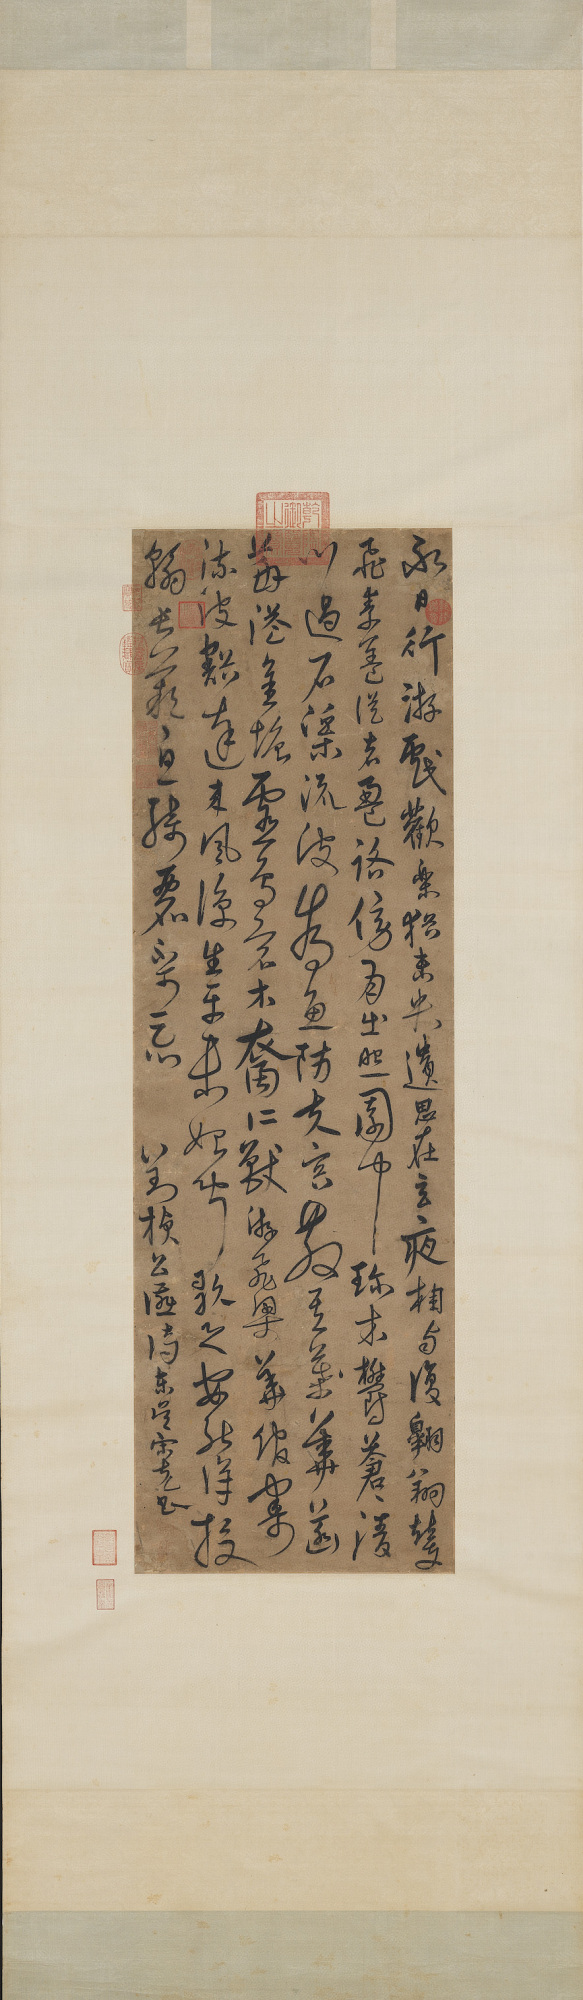 永日行游戲歡樂猶未央遺思在玄夜相與復翱翔輦車
飛素蓋從者盈路傍月出照園中珍木鬱蒼蒼清
川過石渠流波為魚防夫容散其華菡
萏溢金塘靈鳥宿水裔仁獸游飛梁華館寄
流波豁達來風涼生平未始聞歌之安能詳投
翰長歎息綺麗不可忘
劉楨公讌詩東吳宋克書
乾隆御覽之寶